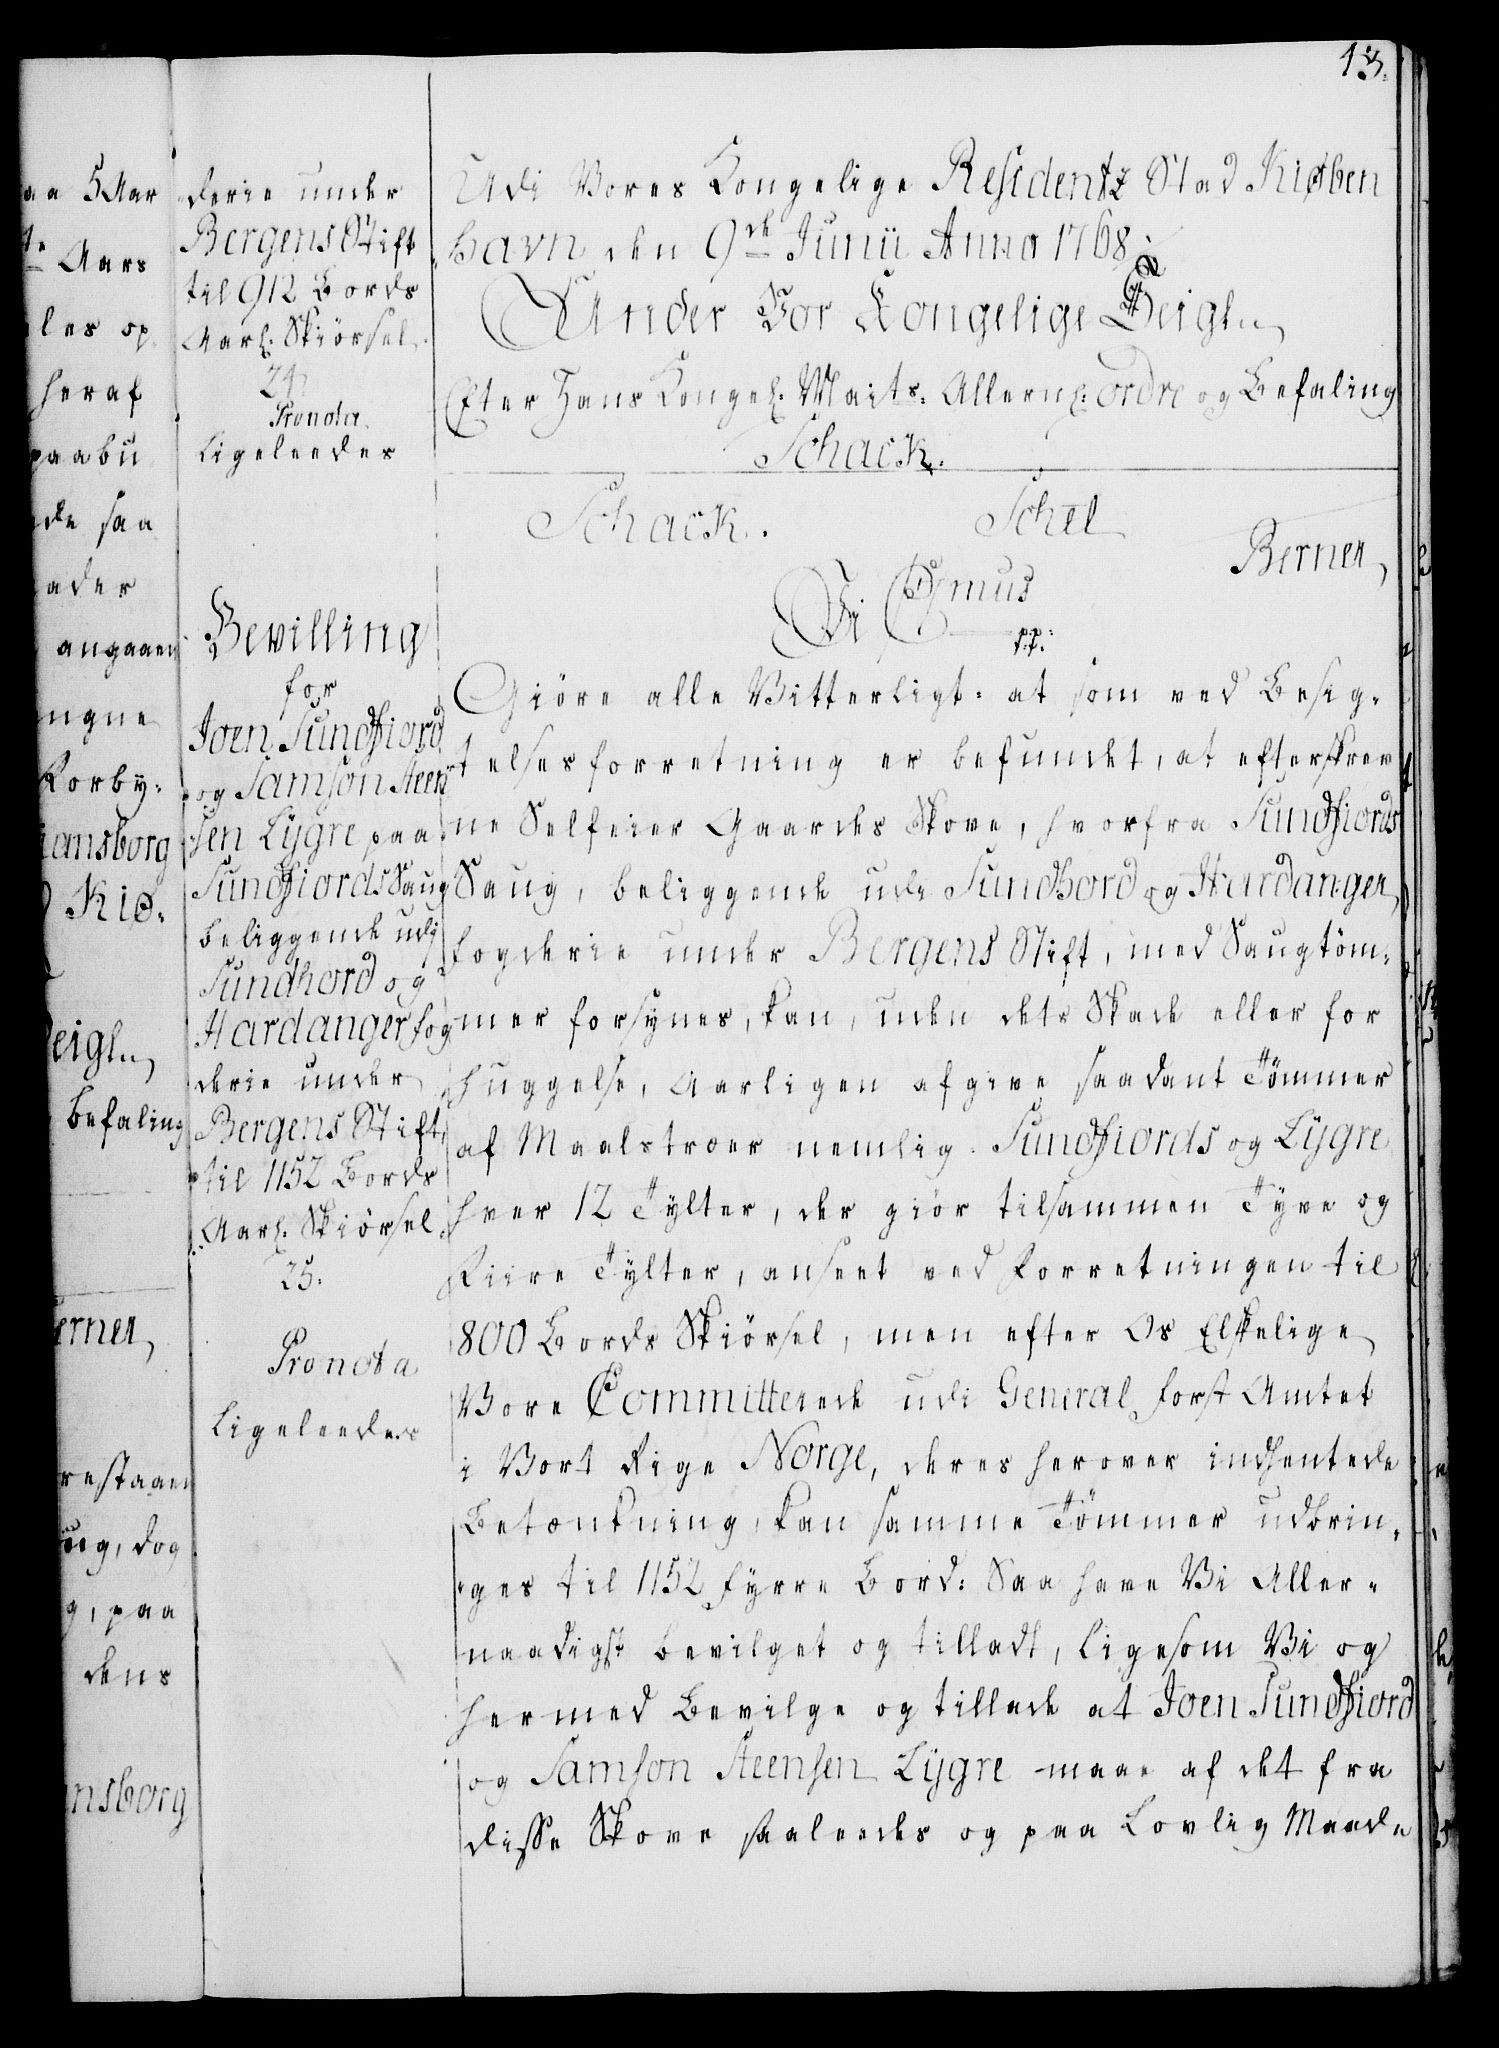 13.
aa 5 Aar
te Aars
les op
heraf
paabu
de saa
ader
angaaen
ngne
Forby-
iansborg
Kiø-
Seigl
befaling
erner
restaaen
ug, dog
g, paa
dens
ansborg
derie under
Bergens Stift
til 912 Bords
Aarl: Skiørsel
24
Pronota
Ligeleedes
Bevilling
for
Joen Sundfiord
og Samson Steen
sen Lygre paa
Sundfiords Saug
beliggende udj
Sundhord og
Hardanger fog
derie under
Bergens Stift
til 1152 Bords
Aarl: Skiørsel
25.
Pronota
Ligeleedes
Udi Vores Kongelige Residentz Stad Kiøben
havn den 9de Junii Anno 1768.
Under Vor Kongelige Seigl
Efter Hans Kongel: Maits: Allern: ordre og Befaling
Schack.
Schack. Schel Berner
Vi C 7mus
p.p:
Giöre alle Vitterligt: at som ved Besig-
telsesforretning er befundet, at efterskrev
ne Selfeier Gaardes Skove, hvorfra Sundfiords
Saug, beliggende udi Sundhord og Hardanger
fogderie under Bergens Stift, med Saugtöm-
mer forsynes, kan, uden dets Skade eller for
huggelse, Aarligen afgive saadant Tömmer
af Maalstroer nemlig. Sundfiords og Lygre
hver 12 Tylter, der giör tilsammen Tyve og
Fiire Tylter, anseet ved Forretningen til
800 Bords Skiörsel, men efter Os Elskelige
Vore Committerede udi General forst Amtet
i Vort Rige Norge, deres herover indhentede
Betænkning, kan samme Tömmer udbrin-
ges til 1152 fyrre Bord: Saa have Vi Aller-
naadigst bevilget og tilladt, ligesom Vi og
hermed Bevilge og tillade at Joen Sundfiord
og Samson Steensen Lygre maae af det fra
disse Skove saaledes og paa Lovlig Maade